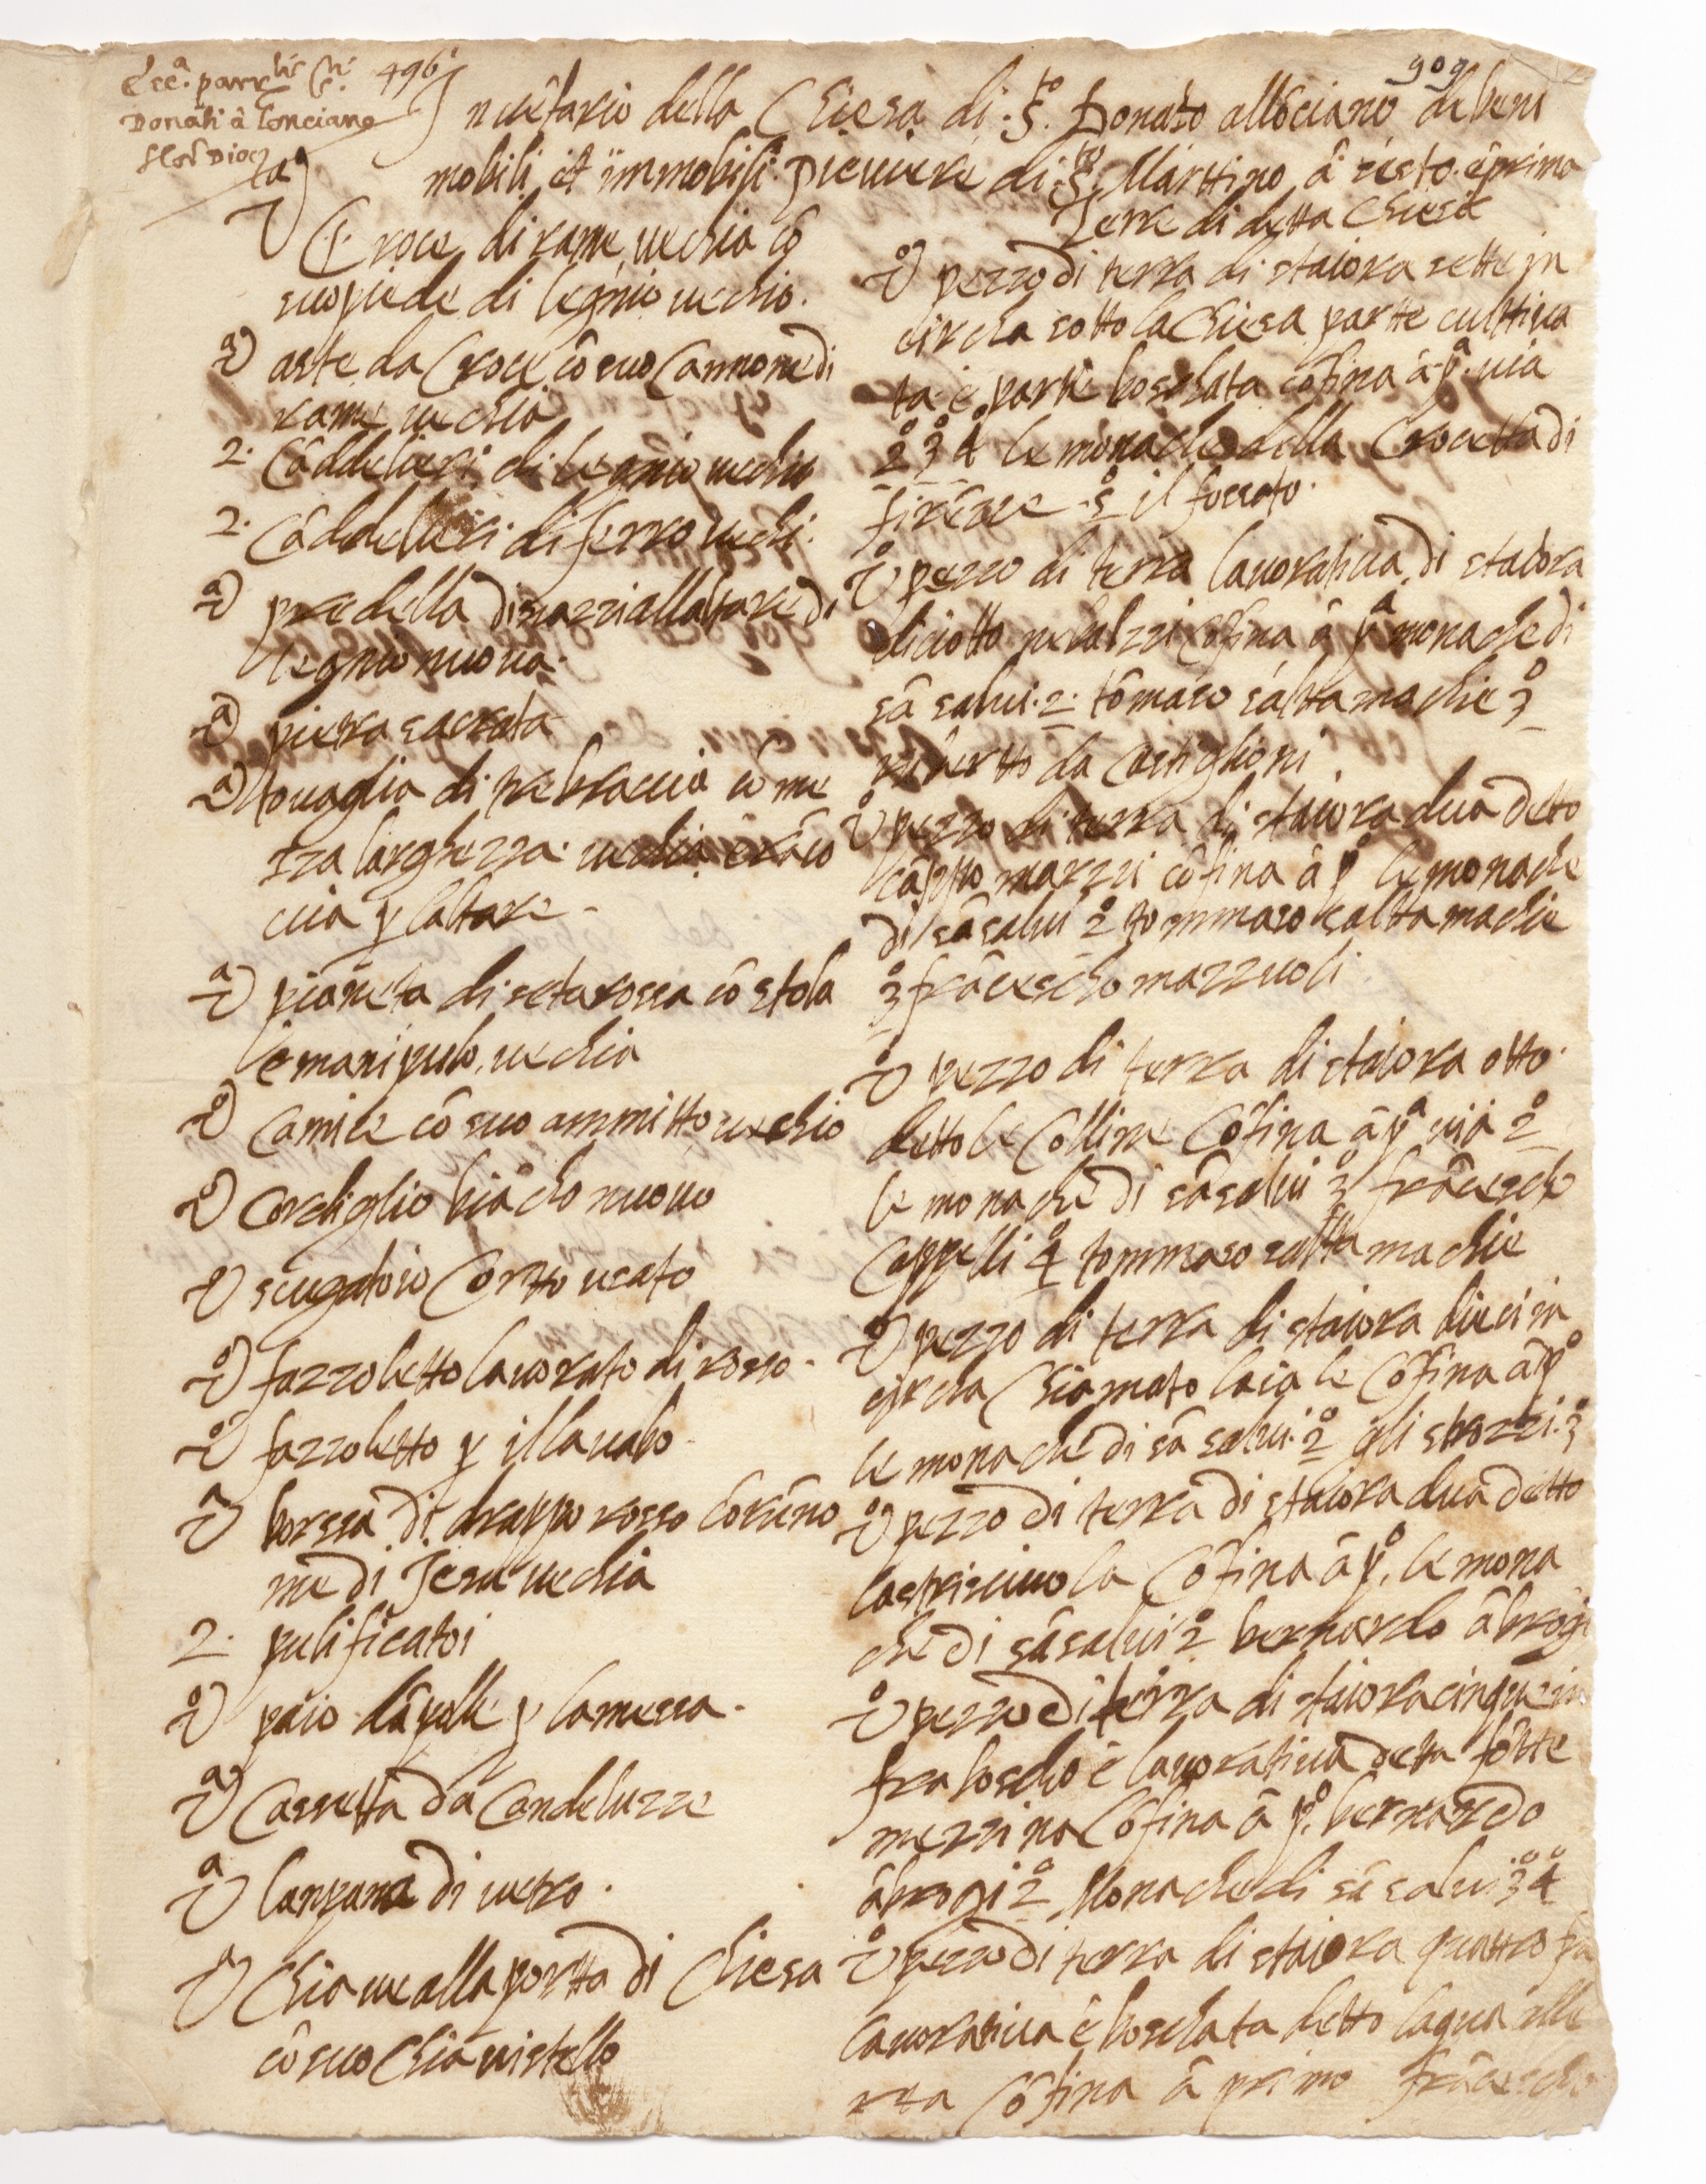 Ecc.a parr.lis S.ti 496
Donati à Lonciano
Flor. Dioc.
909
Inuētario della Chiesa di S.to Donato allōciano de beni
mobili et immobili Piuuiere di S.to Marttino â sesto. e prima
Ia Croce di rame uechia cō
suo piede di legnio uechio.
Ia aste da Croce cō suo Cannone di
rame uechia
2. Cādelieri di legnio uechi
2. Cādellieri di ferro uechi.
Ia predella dinazzi allaltare di
legnio nuoua.
Ia pietra sacrata
Ia touaglia di tre braccia cō me
zza larghezza. uechia
cia p laltare
Ia pianeta di seta rossa cō stola
e manipulo. uechia
Io Camice cō suo ammitto uechio
Io Cordiglio biācho nuouo
Io sciugatoio Cortto usato
Io fazzoletto lauorato di rosso.
Io fazzoletto p il lauabo.
Ia borssa di drappo rosso
me di Jesu uechia
2. pulificatoi
Io paio dāpolle p la messa.
Ia Cassetta da Candeluzze
Ia lanpana di uetro.
Ia Chiaue alla portta di Chiesa
cō suo Chiauistello
Terre di detta Chiesa
Io pezzo di terra di staiora sette in
circha sotto la Chiesa partte culttiua
ta e partte boschata cōfina â pa uia
2o 3o 4o le monache della Crocetta di
firēze 5o il fossato.
Io pezzo di terra lauoratiua di staiora
diciotto ne balzi Cōfina â pa monache di
sā salui. 2. tōmaso salttamachie 3o
rubertto da Castiglioni
Io pezzo di terra di staiora dua detto
Cāppo mazzi cōfina â po le monache
di sā salui 2o tommaso salttamachie
3o frācescho mazzuoli
Io pezzo di terra di staiora otto.
detto le Colline Cōfina â pa uia 2o
le monache di sā salui 3o frāceschо
Cappelli 4o tommaso salttamachie
Io pezzo di terra di staiora dieci in
circha Chiamato laiale Cōfina â po
le monache di sā salui. 2o gli strozzi. 3o
Io pezzo di terra di staiora dua detto
lastrisciuola Cōfina â po. le mona
che di sā salui 2o bernardo ābrogi
Io pezzo di terra di staiora cinque in
fra boscho e lauoratiua detta fōtte
mezzina Cōfina â po. bernardo
ābrogi 2o Monache di sā salui 3o 4o
Io pezzo di terra di staiora quattro fra
lauoratiua e boschata detto
Cōfina â primo frācescho